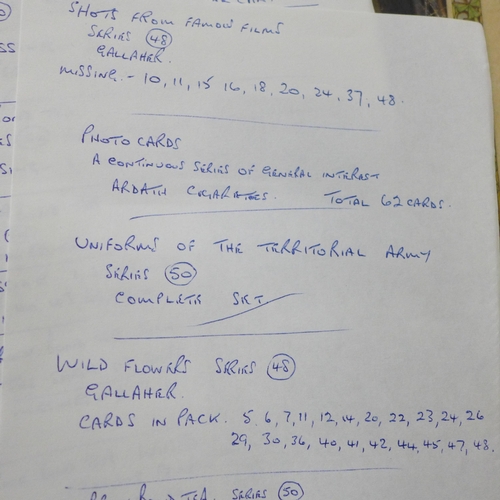 SHOTS FROM FAMOUS FILMS
SERIES 48
GALLAHER.
MISSING.- 10, 11, 15 16, 18, 20, 24, 37, 48.
PHOTO CARDS
A CONTINUOUS SERIES OF GENERAL INTEREST
ARDATH CIGARATES. TOTAL 62 CARDS.
UNIFORMS OF THE TERRITORIAL ARMY
SERIES 50
COMPLETE SET.
WILD FLOWERS SERIES 48
GALLAHER.
CARDS IN PACK. 5, 6, 7, 11, 12, 14, 20, 22, 23, 24, 26
29, 30, 36, 40, 41, 42, 44, 45, 47, 48.
TEA. SERIES 50